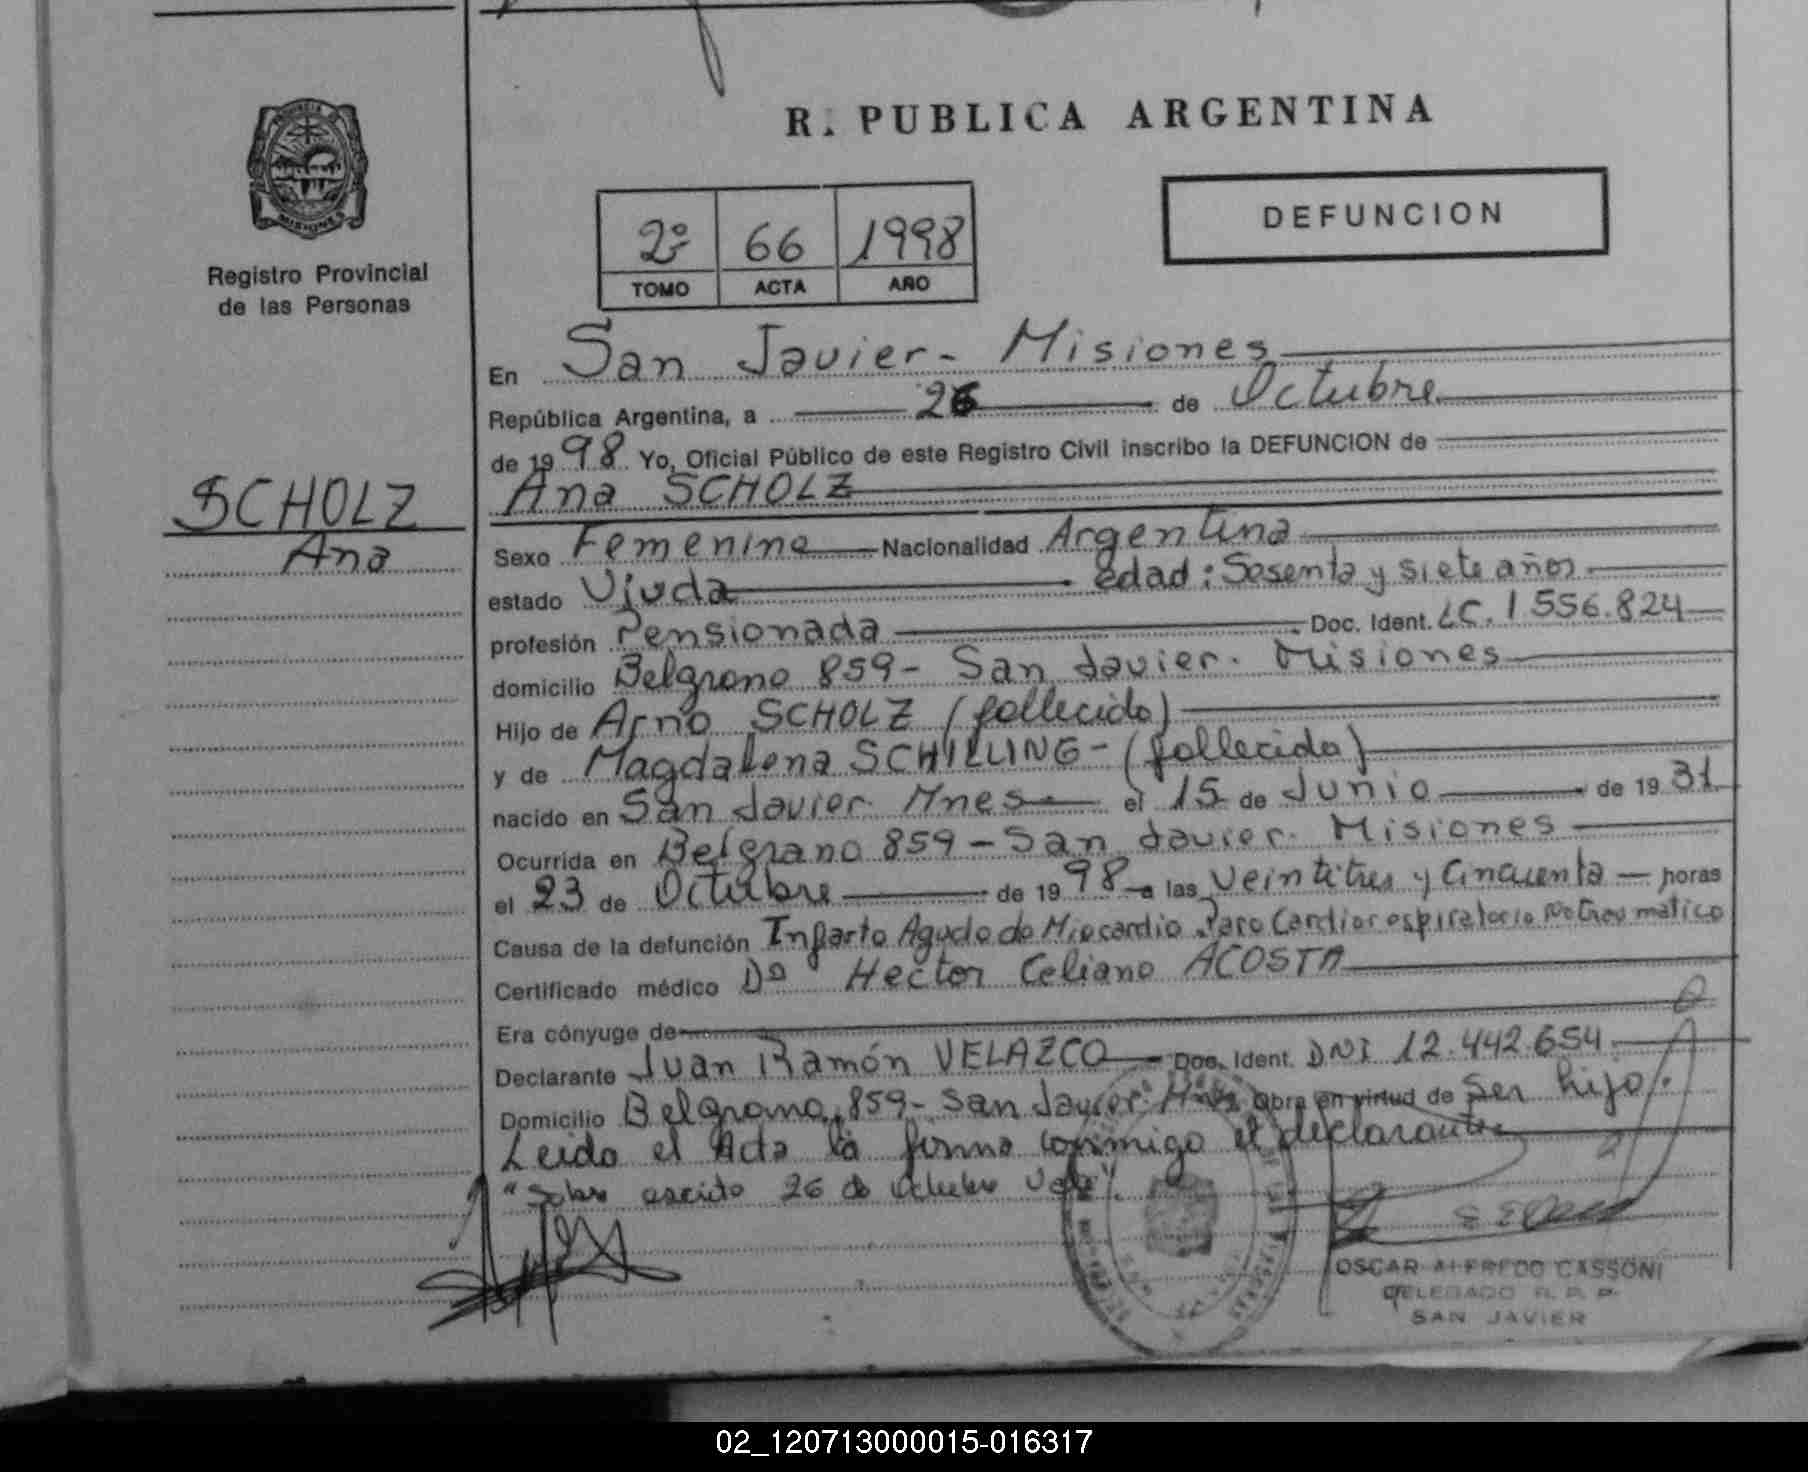 R. PUBLICA ARGENTINA
PROVINCIA
MISIONES
Registro Provincial
de las Personas
2º 66 1998
TOMO ACTA AÑO
DEFUNCION
SCHOLZ
Ana
En San Javier - Misiones
República Argentina, a 26 de Octubre
de 19 98 Yo, Oficial Público de este Registro Civil inscribo la DEFUNCION de
Ana SCHOLZ
Sexo Femenino Nacionalidad Argentina
estado Viuda edad: Sesenta y siete años
profesión Pensionada Doc. Ident. LC. 1.556.824
domicilio Belgrano 859 - San Javier. Misiones
Hijo de Arno SCHOLZ (fallecido)
y de Magdalena SCHILLING - (fallecida)
nacido en San Javier. Mnes el 15 de Junio de 19 31
Ocurrida en Belgrano 859 - San Javier. Misiones
el 23 de Octubre de 19 98 a las Veintitres y Cincuenta horas
Causa de la defunción Infarto Agudo de Miocardio Paro Cardiorespiratorio No traumatico
Certificado médico Dº Hector Celiano ACOSTA
Era cónyuge de
Declarante Juan Ramón VELAZCO Doc. Ident. DNI 12.442.654
Domicilio Belgrano 859 - San Javier. Mnes obra en virtud de Ser hijo.
Leida el Acta la firma conmigo el declarante
"Sobre escrito 26 de Octubre Vale".
OSCAR ALFREDO CASSONI
DELEGADO R. P. P.
SAN JAVIER
02_120713000015-016317